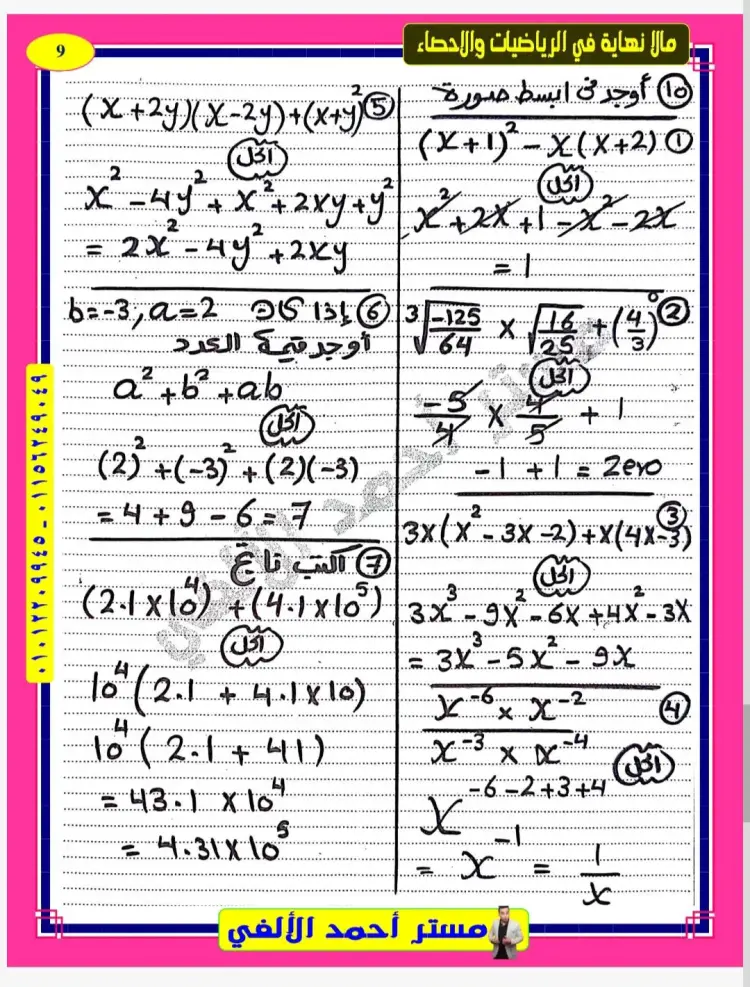 مالا نهاية في الرياضيات والاحصاء
9
⑩ أوجد فى ابسط صورة
① (x+1)² - x(x+2)
الحل
x² + 2x + 1 - x² - 2x
= 1
② ³√(-125/64) × √(16/25) + (4/3)⁰
الحل
-5/4 × 4/5 + 1
-1 + 1 = Zero
③ 3x(x² - 3x - 2) + x(4x-3)
الحل
3x³ - 9x² - 6x + 4x² - 3x
= 3x³ - 5x² - 9x
④ x⁻⁶ × x⁻² / x⁻³ × x⁻⁴
الحل
x⁻⁶⁻²⁺³⁺⁴
= x⁻¹ = 1/x
⑤ (x+2y)(x-2y)+(x+y)²
الحل
x² - 4y² + x² + 2xy + y²
= 2x² - 4y² + 2xy
⑥ إذا كان a=2 , b=-3
أوجد قيمة العدد
a² + b² + ab
الحل
(2)² + (-3)² + (2)(-3)
= 4 + 9 - 6 = 7
⑦ اكتب ناتج
(2.1×10⁴) + (4.1×10⁵)
الحل
10⁴(2.1 + 4.1×10)
10⁴(2.1 + 41)
= 43.1 × 10⁴
= 4.31×10⁵
٠١٠١٢٢٠٩٩٤٥ - ٠١١٥٦٢٤٩٠٤٩
مستر أحمد الألفي
مستر أحمد الألفي